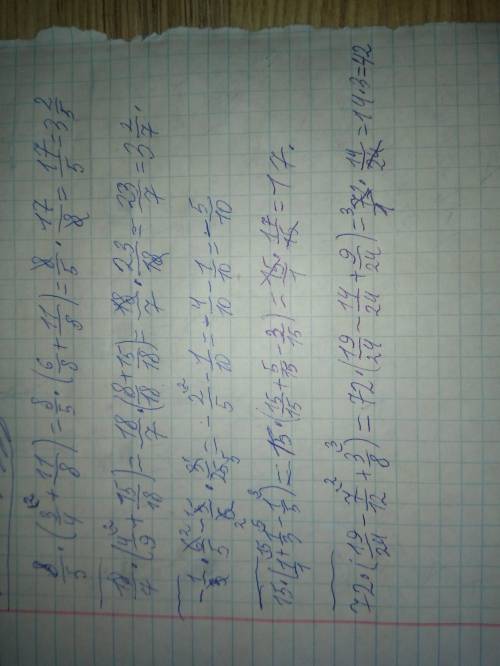 8/5 · (3/4 + 11/8) = 8/5 · (6/8 + 11/8) = 8/5 · 17/8 = 17/5 = 3 2/5
18/7 · (4/9 + 15/18) = 18/7 · (8/18 + 15/18) = 18/7 · 23/18 = 23/7 = 3 2/7.
= - 2/5 - 1/10 = - 4/10 - 1/10 = - 5/10
= 15 · (15/15 + 5/15 - 3/15) = 15/1 · 17/15 = 17.
72 · (19/24 - 7/12 + 3/8) = 72 · (19/24 - 14/24 + 9/24) = 72/1 · 14/24 = 14 · 3 = 42